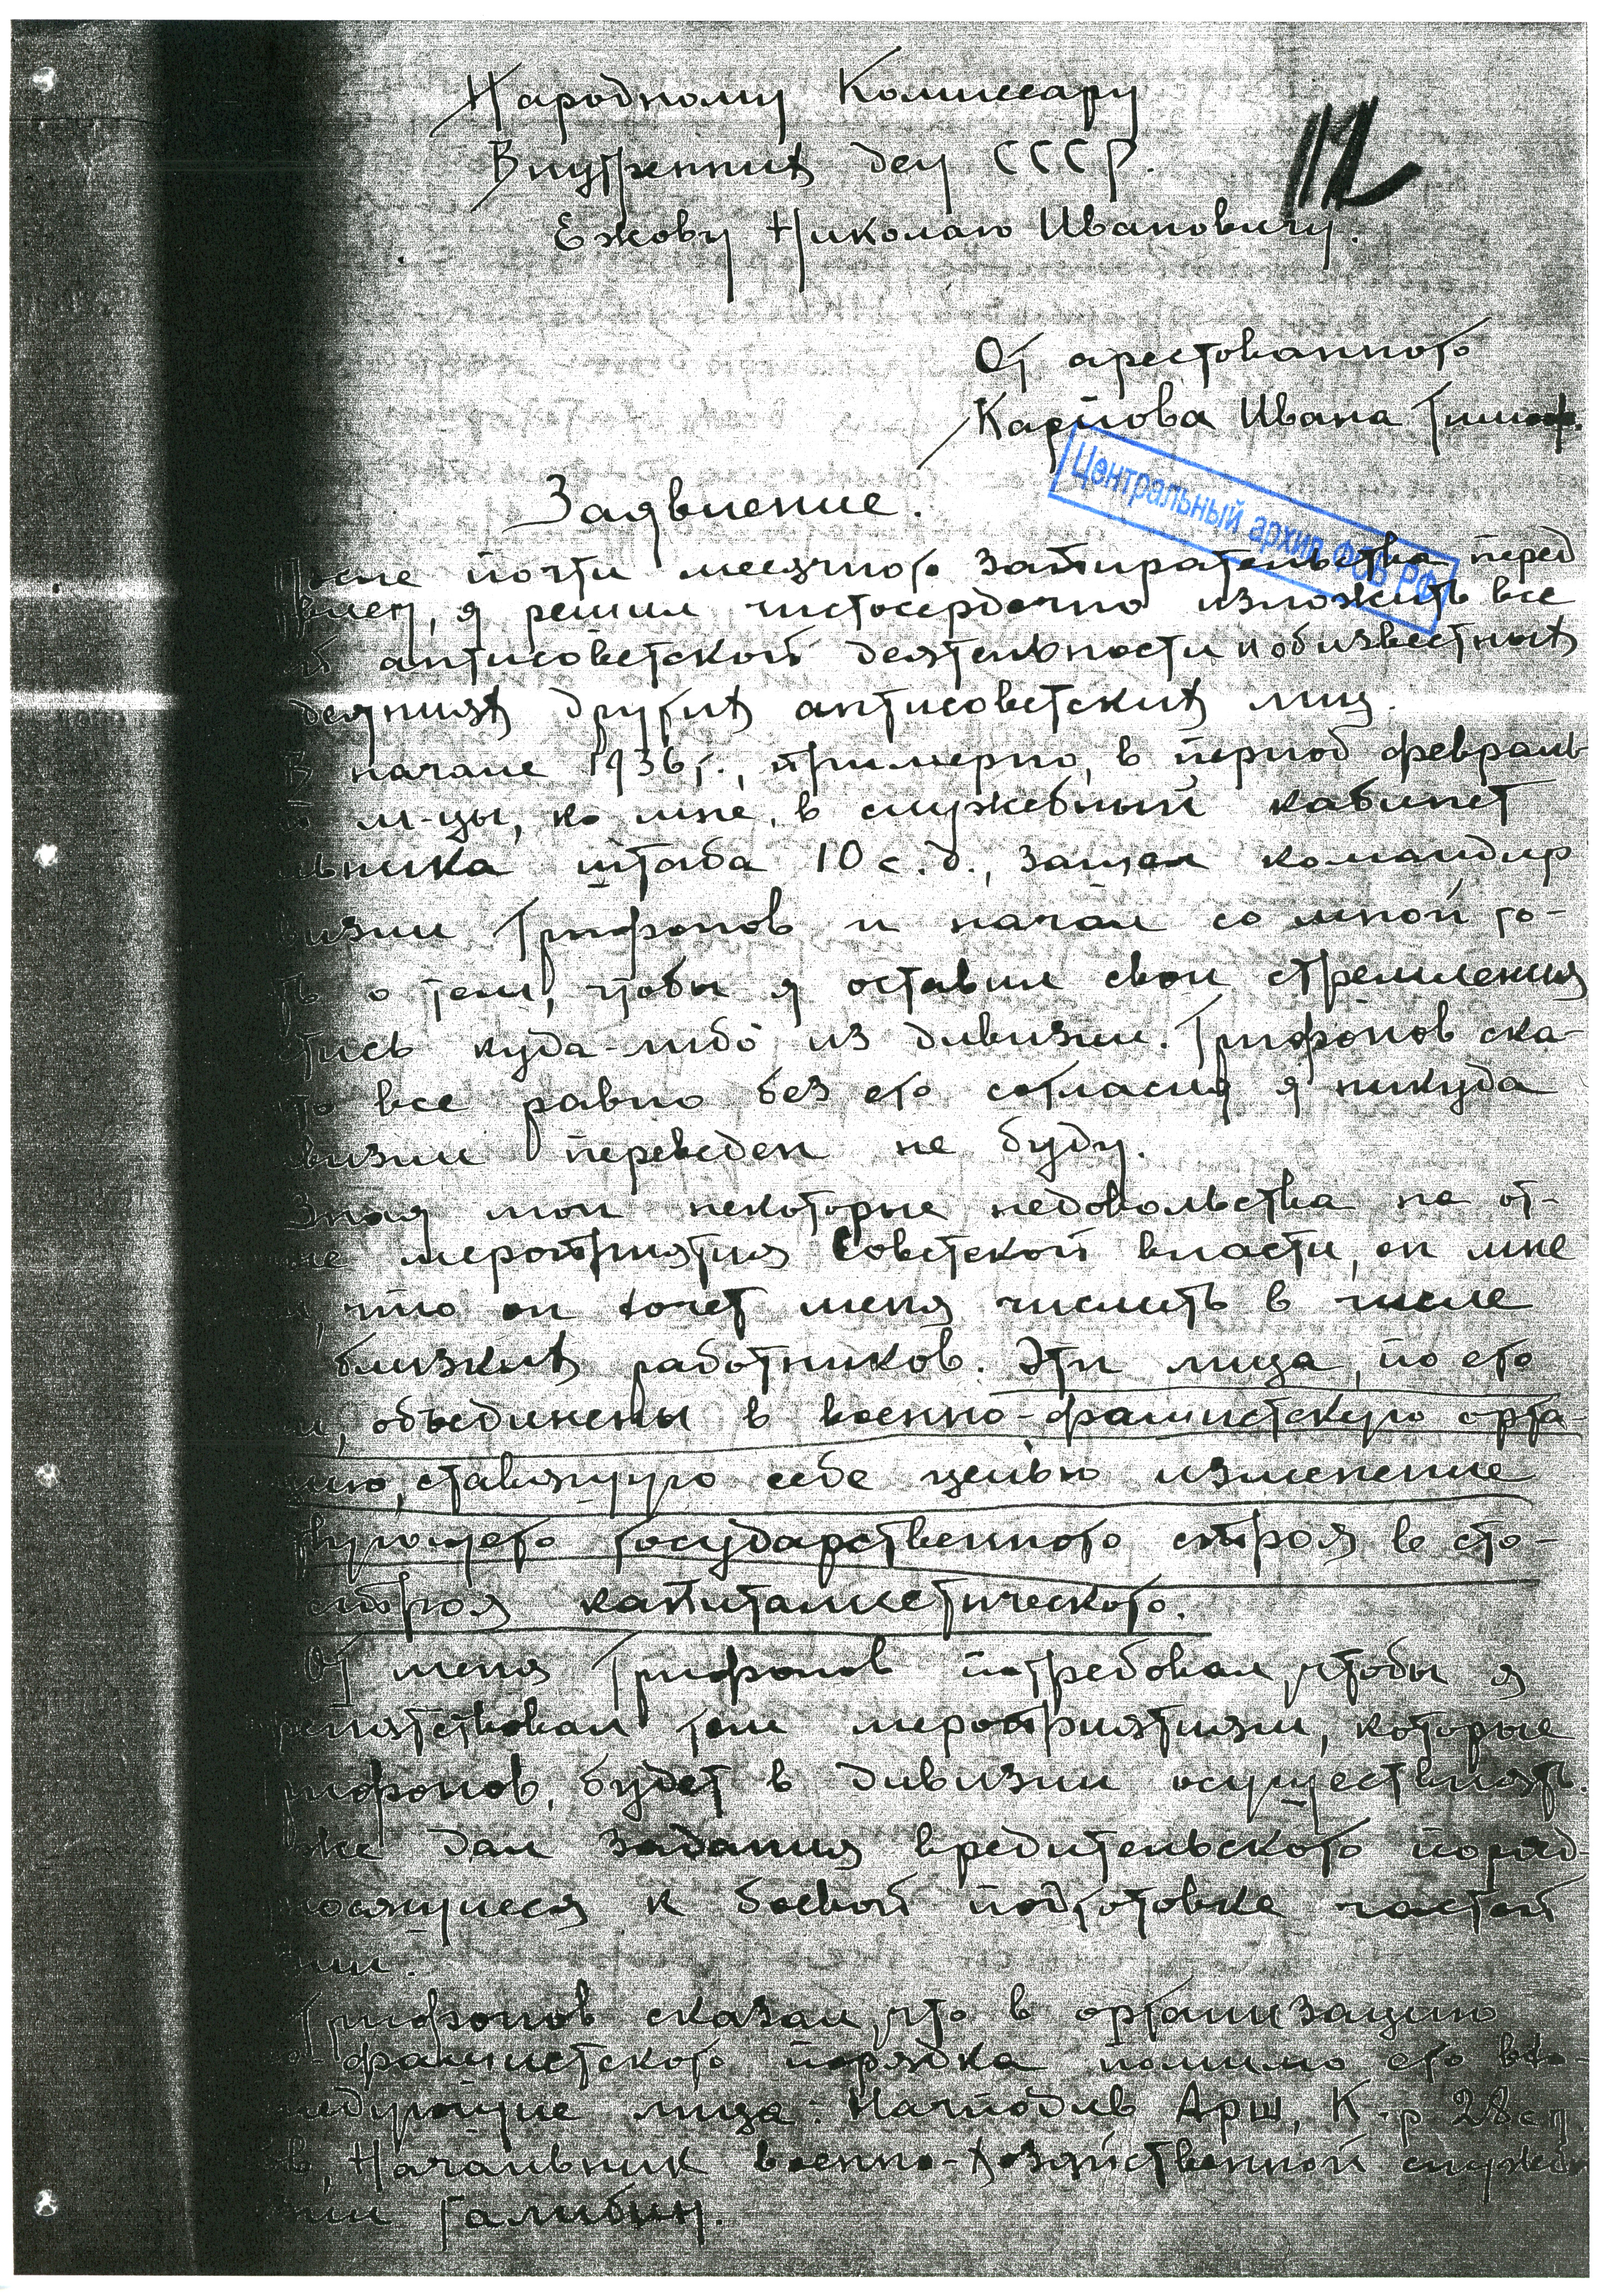 Народному Комиссару
Внутренних дел СССР.
112
Ежову Николаю Ивановичу.
От арестованного
Карпова Ивана Тимоф.
Центральный архив ФСБ РФ
Заявление.
После почти месячного запирательства перед
, я решил чистосердечно изложить все
об антисоветской деятельности и об известных
деяниях других антисоветских лиц.
В начале 1936 г., примерно, в период февраль
м-цы, ко мне, в служебный кабинет
льника штаба 10 с.д., зашел командир
визии Трифонов и начал со мной го-
ть о том, чтобы я оставил свои стремления
тись куда-либо из дивизии. Трифонов ска-
то все равно без его согласия я никуда
визии переведен не буду.
Зная мои некоторые недовольства на от-
ые мероприятия Советской власти, он мне
л, что он хочет меня числить в числе
близких работников. Эти лица, по его
м, объединены в военно-фашистскую орга-
цию, ставящую себе целью изменение
твующего государственного строя в сто-
строя капиталистического.
От меня Трифонов потребовал, чтобы я
репятствовал тем мероприятиям, которые
рифонов, будет в дивизии осуществлять.
же дал задания вредительского поряд-
носящиеся к боевой подготовке частей
зии.
Трифонов сказал, что в организацию
о-фашистского порядка помимо его вхо-
ледующие лица: Начподив Арш, К-р 28 сп
в, Начальник военно-хозяйственной службы
зии Галибин.